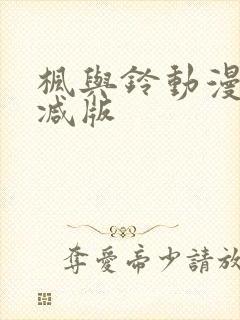 楓與鈴動漫
減版
奪愛帝少請放